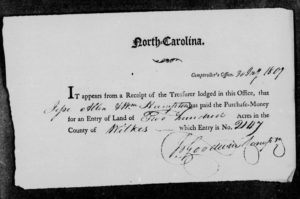 North-Carolina.
Comptroller's Office, 30 July 1809
IT appears from a Receipt of the Treasurer lodged in this Office, that
Jesse Allen & Wm Hampton has paid the Purchase-Money
for an Entry of Land of hundred acres in the
County of Wilkes which Entry is No. 2147